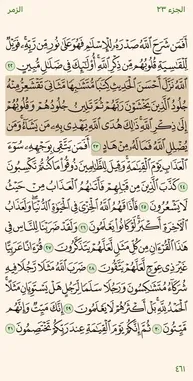 الجزء ٢٣ الزمر
أَفَمَن شَرَحَ ٱللَّهُ صَدْرَهُۥ لِلْإِسْلَٰمِ فَهُوَ عَلَىٰ نُورٍ مِّن رَّبِّهِۦ فَوَيْلٌ
لِّلْقَٰسِيَةِ قُلُوبُهُم مِّن ذِكْرِ ٱللَّهِ أُو۟لَٰٓئِكَ فِى ضَلَٰلٍ مُّبِينٍ ٢٢
ٱللَّهُ نَزَّلَ أَحْسَنَ ٱلْحَدِيثِ كِتَٰبًا مُّتَشَٰبِهًا مَّثَانِىَ تَقْشَعِرُّ مِنْهُ
جُلُودُ ٱلَّذِينَ يَخْشَوْنَ رَبَّهُمْ ثُمَّ تَلِينُ جُلُودُهُمْ وَقُلُوبُهُمْ
إِلَىٰ ذِكْرِ ٱللَّهِ ذَٰلِكَ هُدَى ٱللَّهِ يَهْدِى بِهِۦ مَن يَشَآءُ وَمَن
يُضْلِلِ ٱللَّهُ فَمَا لَهُۥ مِنْ هَادٍ ٢٣ أَفَمَن يَتَّقِى بِوَجْهِهِۦ سُوٓءَ
ٱلْعَذَابِ يَوْمَ ٱلْقِيَٰمَةِ وَقِيلَ لِلظَّٰلِمِينَ ذُوقُوا۟ مَا كُنتُمْ تَكْسِبُونَ
٢٤ كَذَّبَ ٱلَّذِينَ مِن قَبْلِهِمْ فَأَتَىٰهُمُ ٱلْعَذَابُ مِنْ حَيْثُ
لَا يَشْعُرُونَ ٢٥ فَأَذَاقَهُمُ ٱللَّهُ ٱلْخِزْىَ فِى ٱلْحَيَوٰةِ ٱلدُّنْيَا وَلَعَذَابُ
ٱلْءَاخِرَةِ أَكْبَرُ لَوْ كَانُوا۟ يَعْلَمُونَ ٢٦ وَلَقَدْ ضَرَبْنَا لِلنَّاسِ فِى
هَٰذَا ٱلْقُرْءَانِ مِن كُلِّ مَثَلٍ لَّعَلَّهُمْ يَتَذَكَّرُونَ ٢٧ قُرْءَانًا عَرَبِيًّا
غَيْرَ ذِى عِوَجٍ لَّعَلَّهُمْ يَتَّقُونَ ٢٨ ضَرَبَ ٱللَّهُ مَثَلًا رَّجُلًا فِيهِ
شُرَكَآءُ مُتَشَٰكِسُونَ وَرَجُلًا سَلَمًا لِّرَجُلٍ هَلْ يَسْتَوِيَانِ مَثَلًا
ٱلْحَمْدُ لِلَّهِ بَلْ أَكْثَرُهُمْ لَا يَعْلَمُونَ ٢٩ إِنَّكَ مَيِّتٌ وَإِنَّهُم
مَّيِّتُونَ ٣٠ ثُمَّ إِنَّكُمْ يَوْمَ ٱلْقِيَٰمَةِ عِندَ رَبِّكُمْ تَخْتَصِمُونَ ٣١
٤٦١